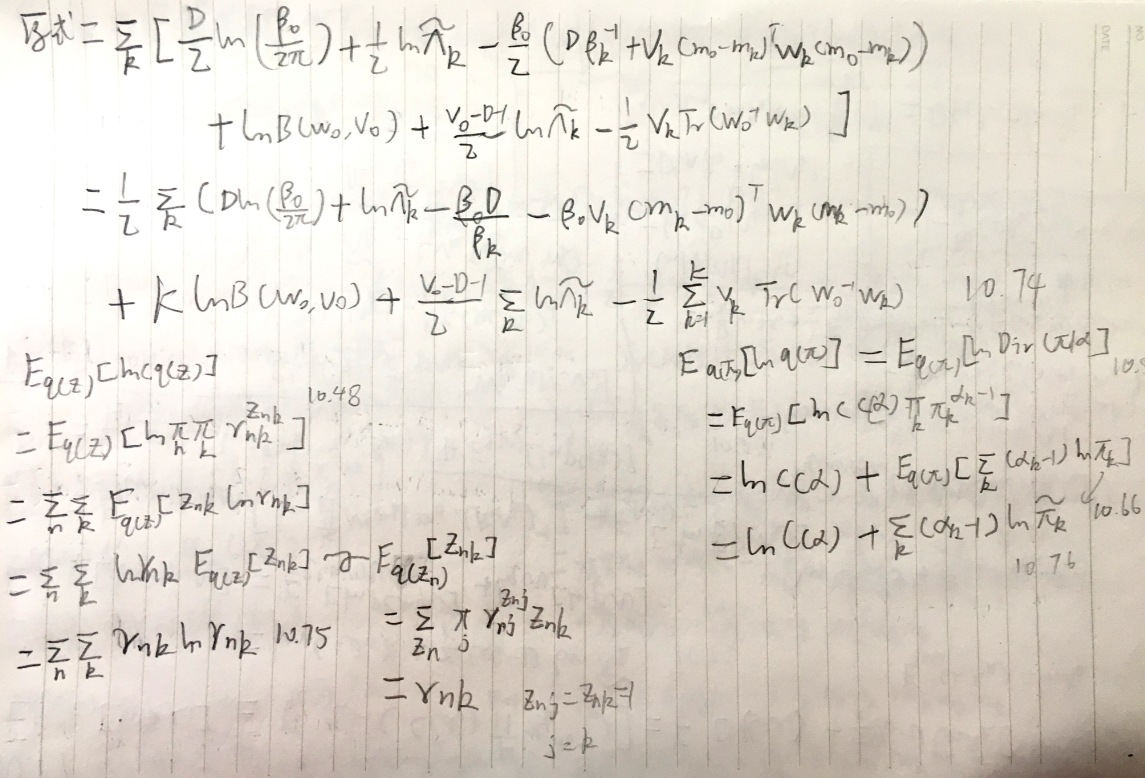 原式 = Σ_k [ D/2 ln(β₀/2π) + 1/2 ln Λ̃_k − β₀/2 (Dβ_k⁻¹ + V_k (m₀−m_k)ᵀ W_k (m₀−m_k))
+ ln B(W₀, V₀) + (V₀−D−1)/2 ln Λ̃_k − 1/2 V_k Tr(W₀⁻¹ W_k) ]
= 1/2 Σ_k (D ln(β₀/2π) + ln Λ̃_k − β₀D/β_k − β₀V_k (m_k−m₀)ᵀ W_k (m_k−m₀))
+ K ln B(W₀, V₀) + (V₀−D−1)/2 Σ_k ln Λ̃_k − 1/2 Σ_{k=1}^{K} V_k Tr(W₀⁻¹ W_k) 10.74
E_{q(z)}[ln q(z)]
= E_{q(z)}[ln π_n π_k r_{nk}^{z_{nk}}] 10.48
= Σ_n Σ_k E_{q(z)}[z_{nk} ln r_{nk}]
= Σ_n Σ_k ln r_{nk} E_{q(z)}[z_{nk}]
= Σ_n Σ_k r_{nk} ln r_{nk} 10.75
E_{q(z_n)}[z_{nk}]
= Σ_{z_n} π_j r_{nj}^{z_{nj}} z_{nk}
= r_{nk} z_{nj} = z_{nk} = 1
j = k
E_{q(π)}[ln q(π)] = E_{q(π)}[ln Dir(π|α)]
= E_{q(π)}[ln C(α) π_k π_k^{α_k−1}]
= ln C(α) + E_{q(π)}[Σ_k (α_k−1) ln π_k]
= ln C(α) + Σ_k (α_k−1) ln π̃_k 10.66
10.76
DATE
NO